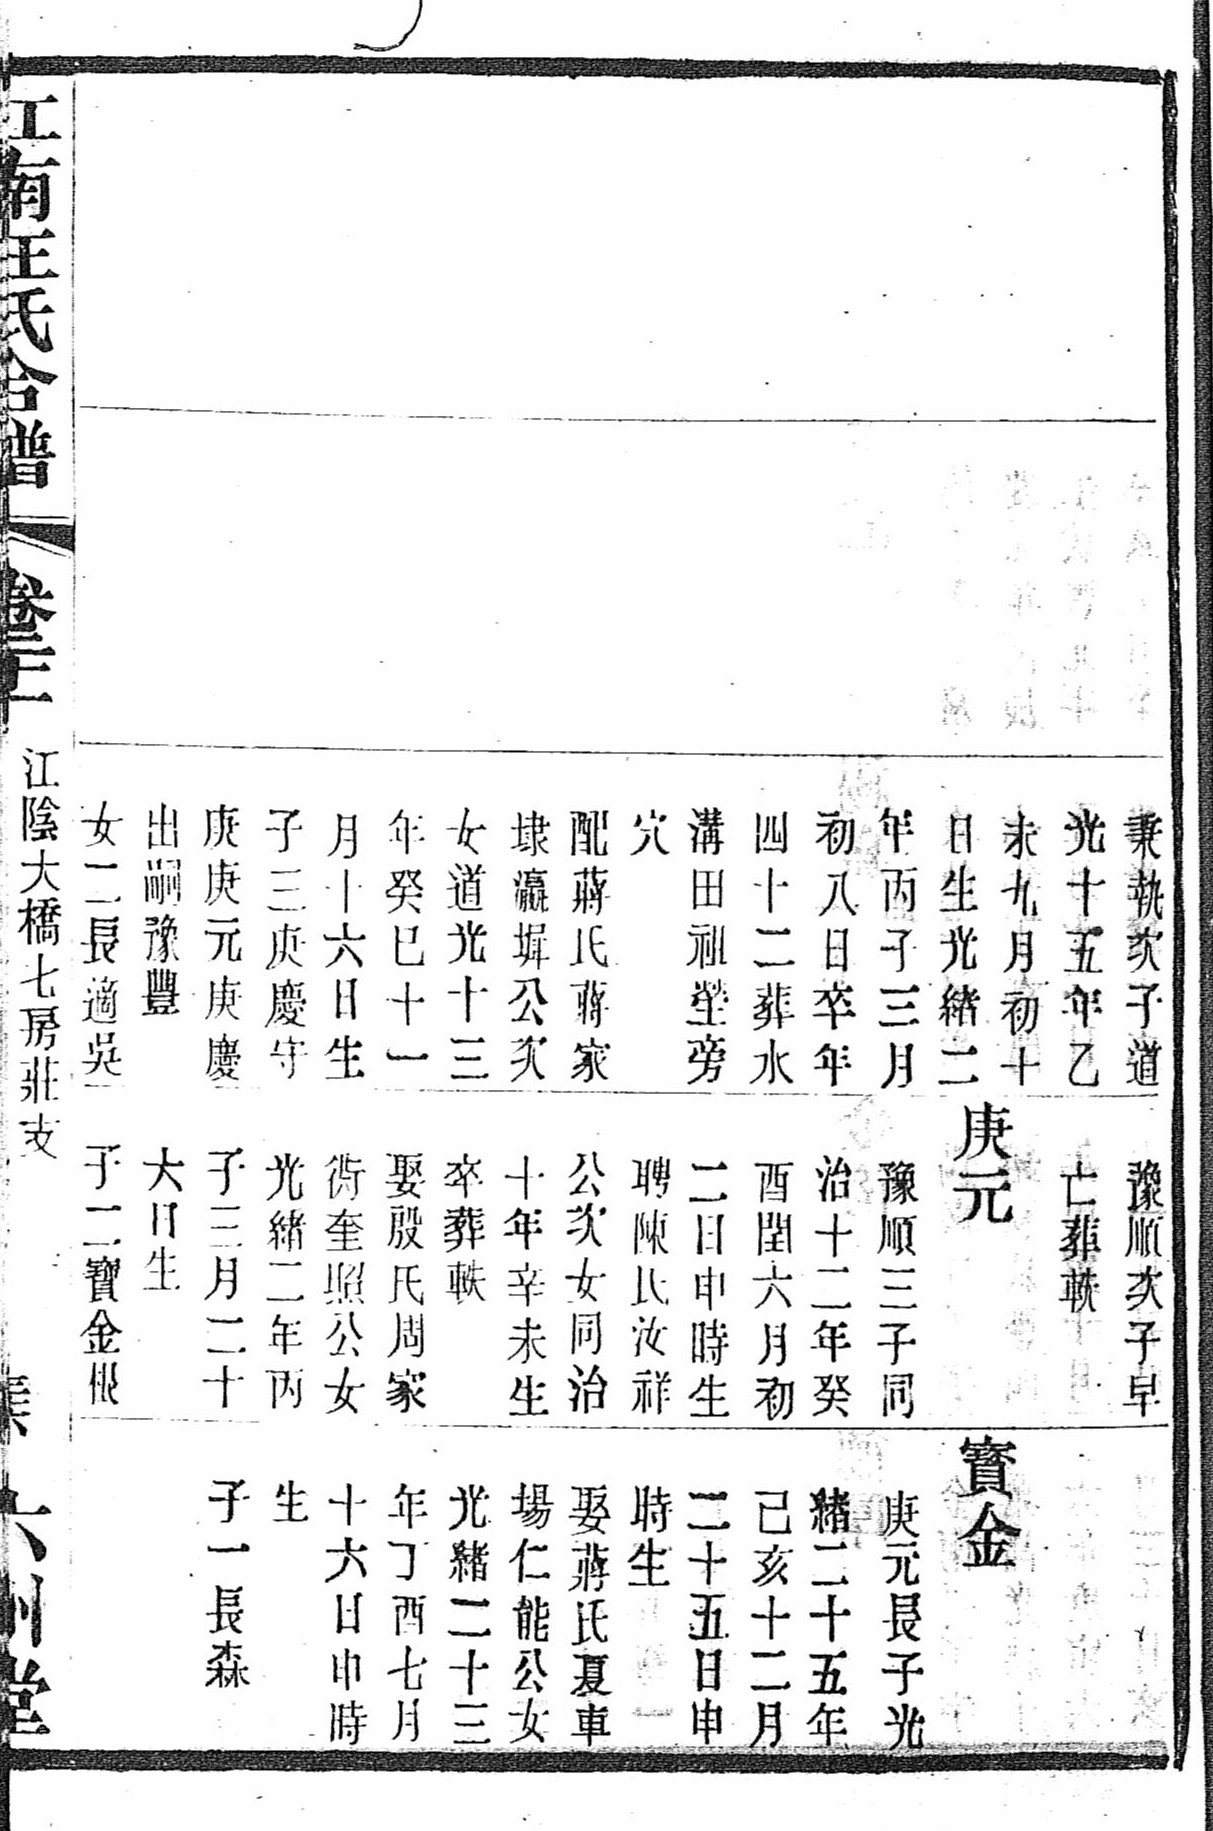 秉執次子道
光十五年乙
未九月初十
日生光緒二
年丙子三月
初八日卒年
四十二葬水
溝田祖塋旁
穴
配蔣氏蔣家
埭瀛墀公次
女道光十三
年癸巳十一
月十六日生
子三庚慶守
庚庚元庚慶
出嗣豫豐
女二長適吳
豫順次子早
亡葬軼
庚元
豫順三子同
治十二年癸
酉閏六月初
二日申時生
聘陳氏汝祥
公次女同治
十年辛未生
卒葬軼
娶殷氏周家
衖奎照公女
光緒二年丙
子三月二十
六日生
子二寶金根
寶金
庚元長子光
緒二十五年
己亥十二月
二十五日申
時生
娶蔣氏夏車
場仁能公女
光緒二十三
年丁酉七月
十六日申時
生
子一長森
江南王氏合譜
卷三
江陰大橋七房莊支
六州堂